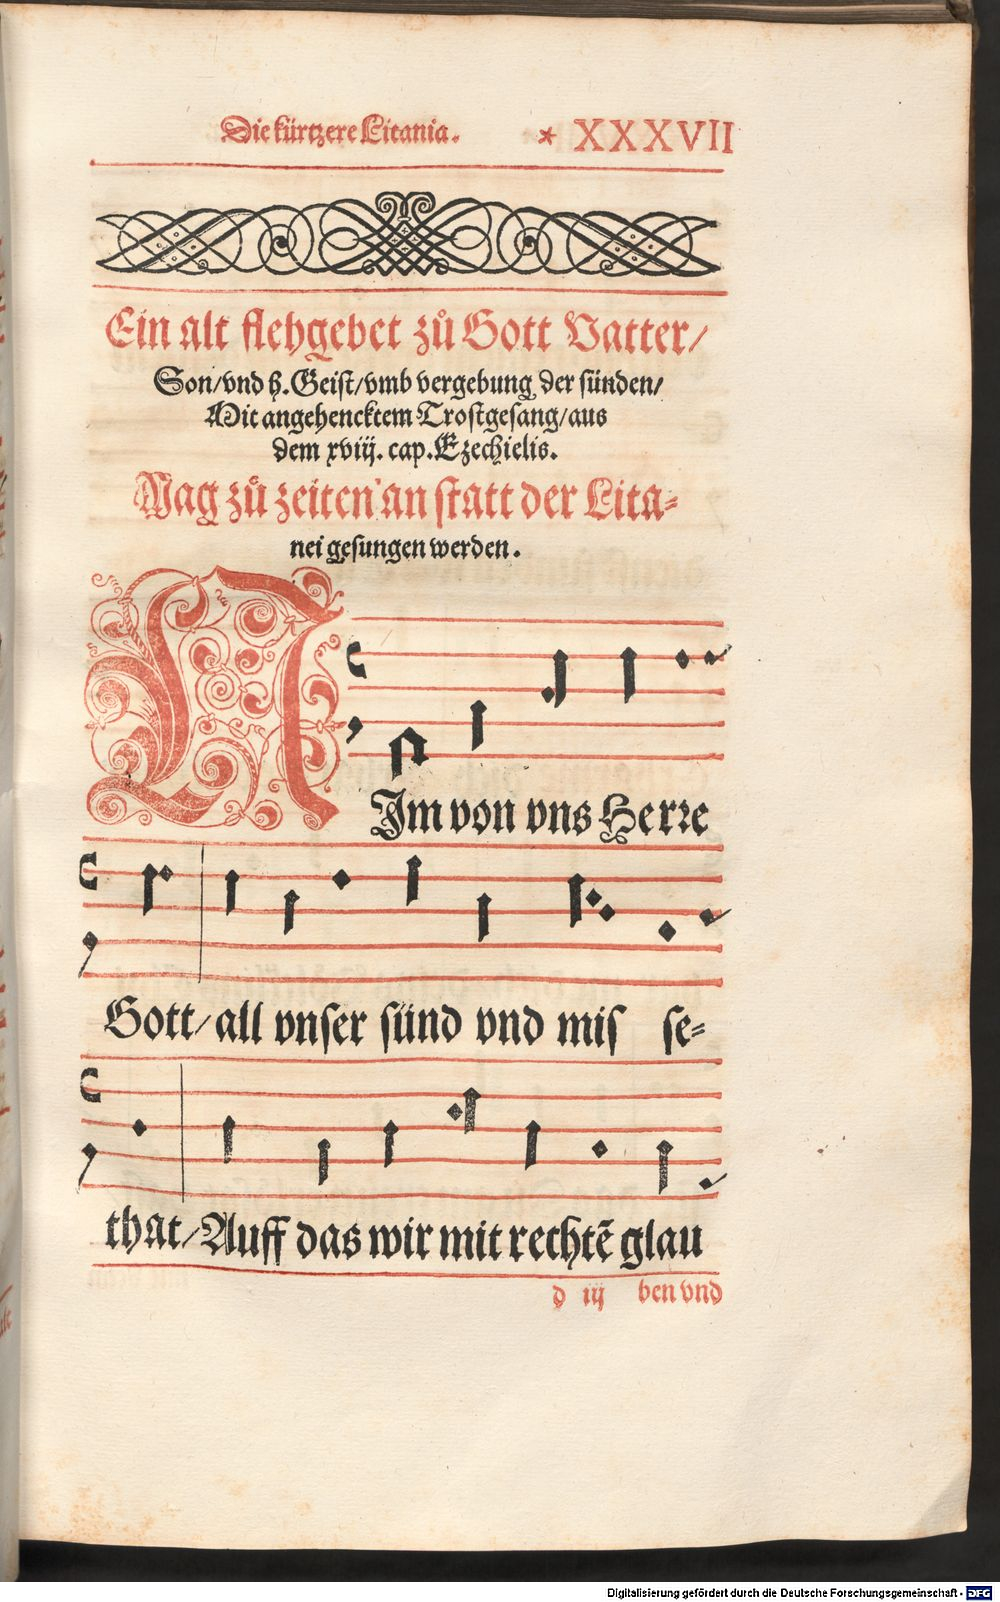 Die kürtzere Litania. * XXXVII
Ein alt flehgebet zů Gott Vatter/
Son/vnd h. Geist/vmb vergebung der sünden/
Mit angehencktem Trostgesang/aus
dem xviij. cap. Ezechielis.
Mag zů zeiten an statt der Lita-
nei gesungen werden.
NIm von vns Herre
Gott/ all vnser sünd vnd mis se-
that/ Auff das wir mit rechtẽ glau
d iij ben vnd
Digitalisierung gefördert durch die Deutsche Forschungsgemeinschaft - DFG